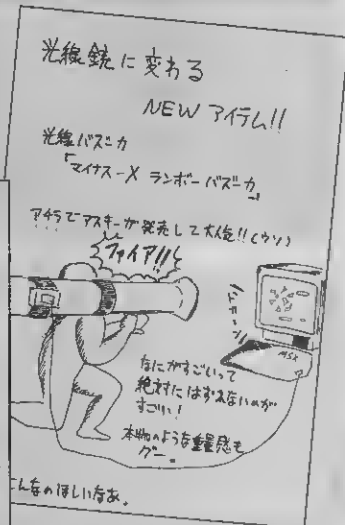 光線銃に変わる
NEW アイテム!!
光線バズーカ
「マイナス-X ランボーバズーカ」
アチラでアスキーが発売して大人気!!(ウソ)
ファイア!!
ドカーン
MSX
なにがすごいって
絶対にはずれないのが
すごい!
本物のような重量感も
グー。
こんなのほしいなあ。